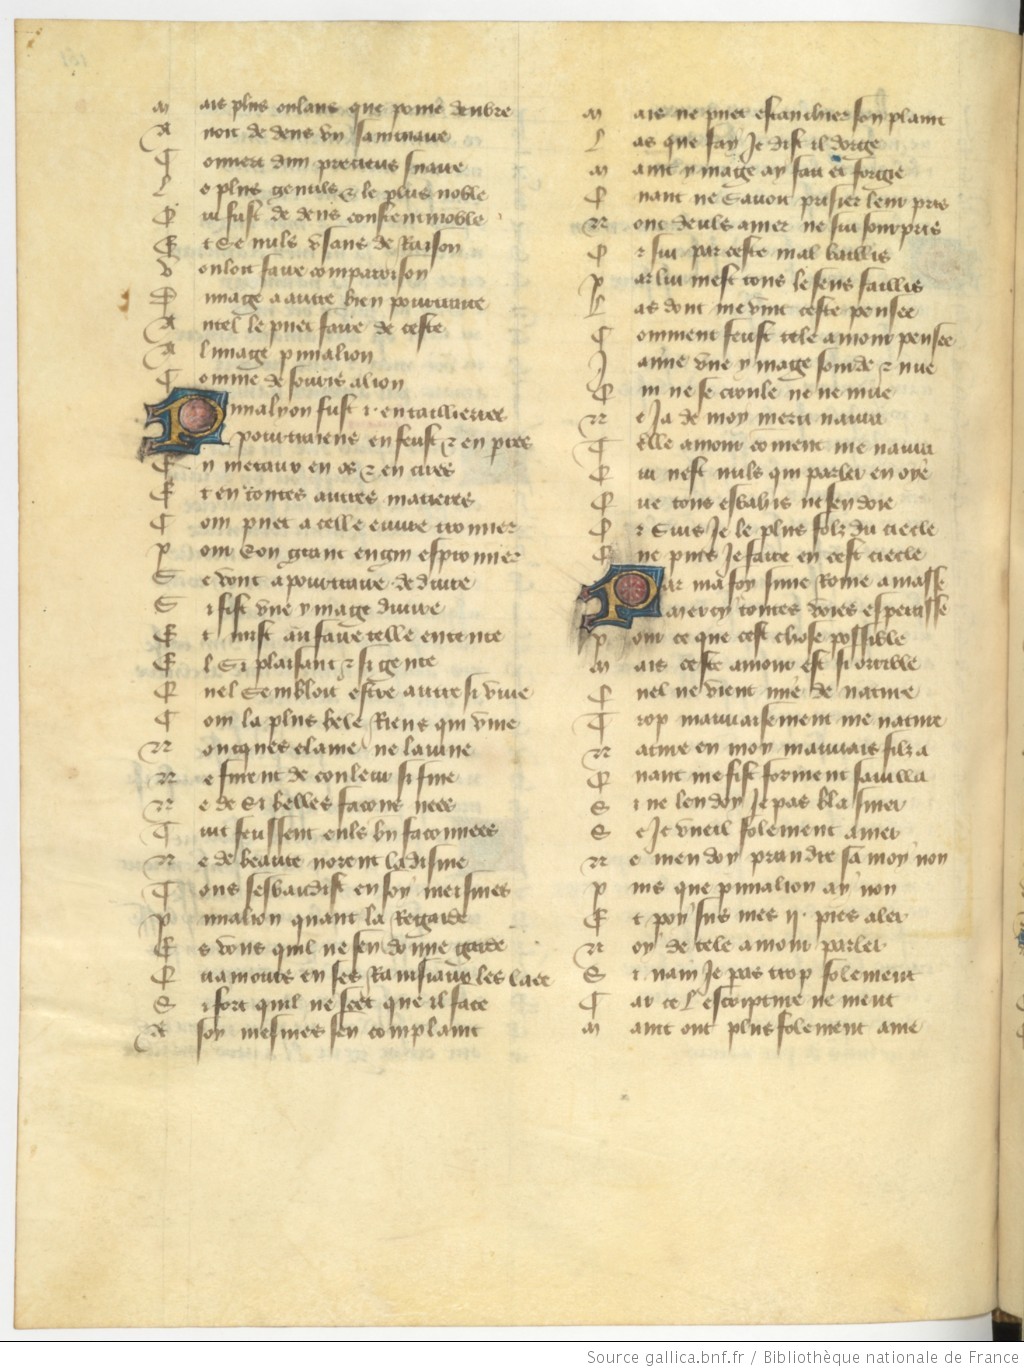 Mais plus onlans que pome dembre
Avoit dedens un saintuaire
Couvert dun precieus suaire
Le plus gentils & le plus noble
Qui fust de dens constentinoble
Et se nuls usans de Raison
Vouloit faire comparoison
Dimage a autre bien pourtraite
Autel le puet faire de ceste
A limage pimalion
Comme de souris a lion
Pimalyon fust .i. entaillierres
pourtraiens en feust & en pierres
En metaux en os & en cires
Et en toutes autres matieres
Com puet a telle euvre trouver
Pour son grant engin esprouver
Se voult a pourtraire deduire
Si fist une ymage divire
Et mist au faire telle entente
El si plaisant & si gente
Quel sembloit estre autre si vive
Com la plus bele Riens qui vive
Oncques elaine ne lavine
Ne furent de couleur si fine
Ne de si belles facons nees
Tuit feussent euls by faconnees
Ne de beaute norent la disme
Tous sesbaudist en soy meismes
Pimalion quant la Regarde
Es vous quil ne sen donne garde
Quamours en ses Rainsiaux les lace
Si fort quil ne scet que il face
A soy mesmes sen complaint
Mais ne puet estanchier son plaint
Las que fay Je dist il dorge
Maint ymage ay fait et forge
Quant ne savoit prisier leur pris
Nont deuls amer ne fui sourpris
Or sui par ceste mal baillis
Par lui mest tous le sens faillis
Las dont me vint ceste pensee
Comment feust tele amour pensee
Jaime une ymage sourde & nue
Qui ne se croule ne ne mue
Ne Ja de moy merci naura
Telle amour coment me naura
Qui nest nuls qui parler en oye
Que tous esbahis ne sen doie
Or suis Je le plus folz du siecle
Que puis Je faire en cest siecle
Par ma foy sune Rome amasse
Mercy toutes voies esperasse
Pour ce que cest chose possible
Mais ceste amour est si orrible
Quel ne vient mie de nature
Trop mauvaisement me nature
Nature en moy mauvais filz a
Quant me fist forment savilla
Si ne len doy Je pas blasmer
Se Je vueil folement amer
Ne men doy prandre sa moy non
Puis que pimalion ay non
Et poy sus mes .ij. pies aler
Noy de tele amour parler
Si. naim Je pas trop folement
Car ce lescripture ne ment
Maint ont plus folement ame
Source gallica.bnf.fr / Bibliothèque nationale de France